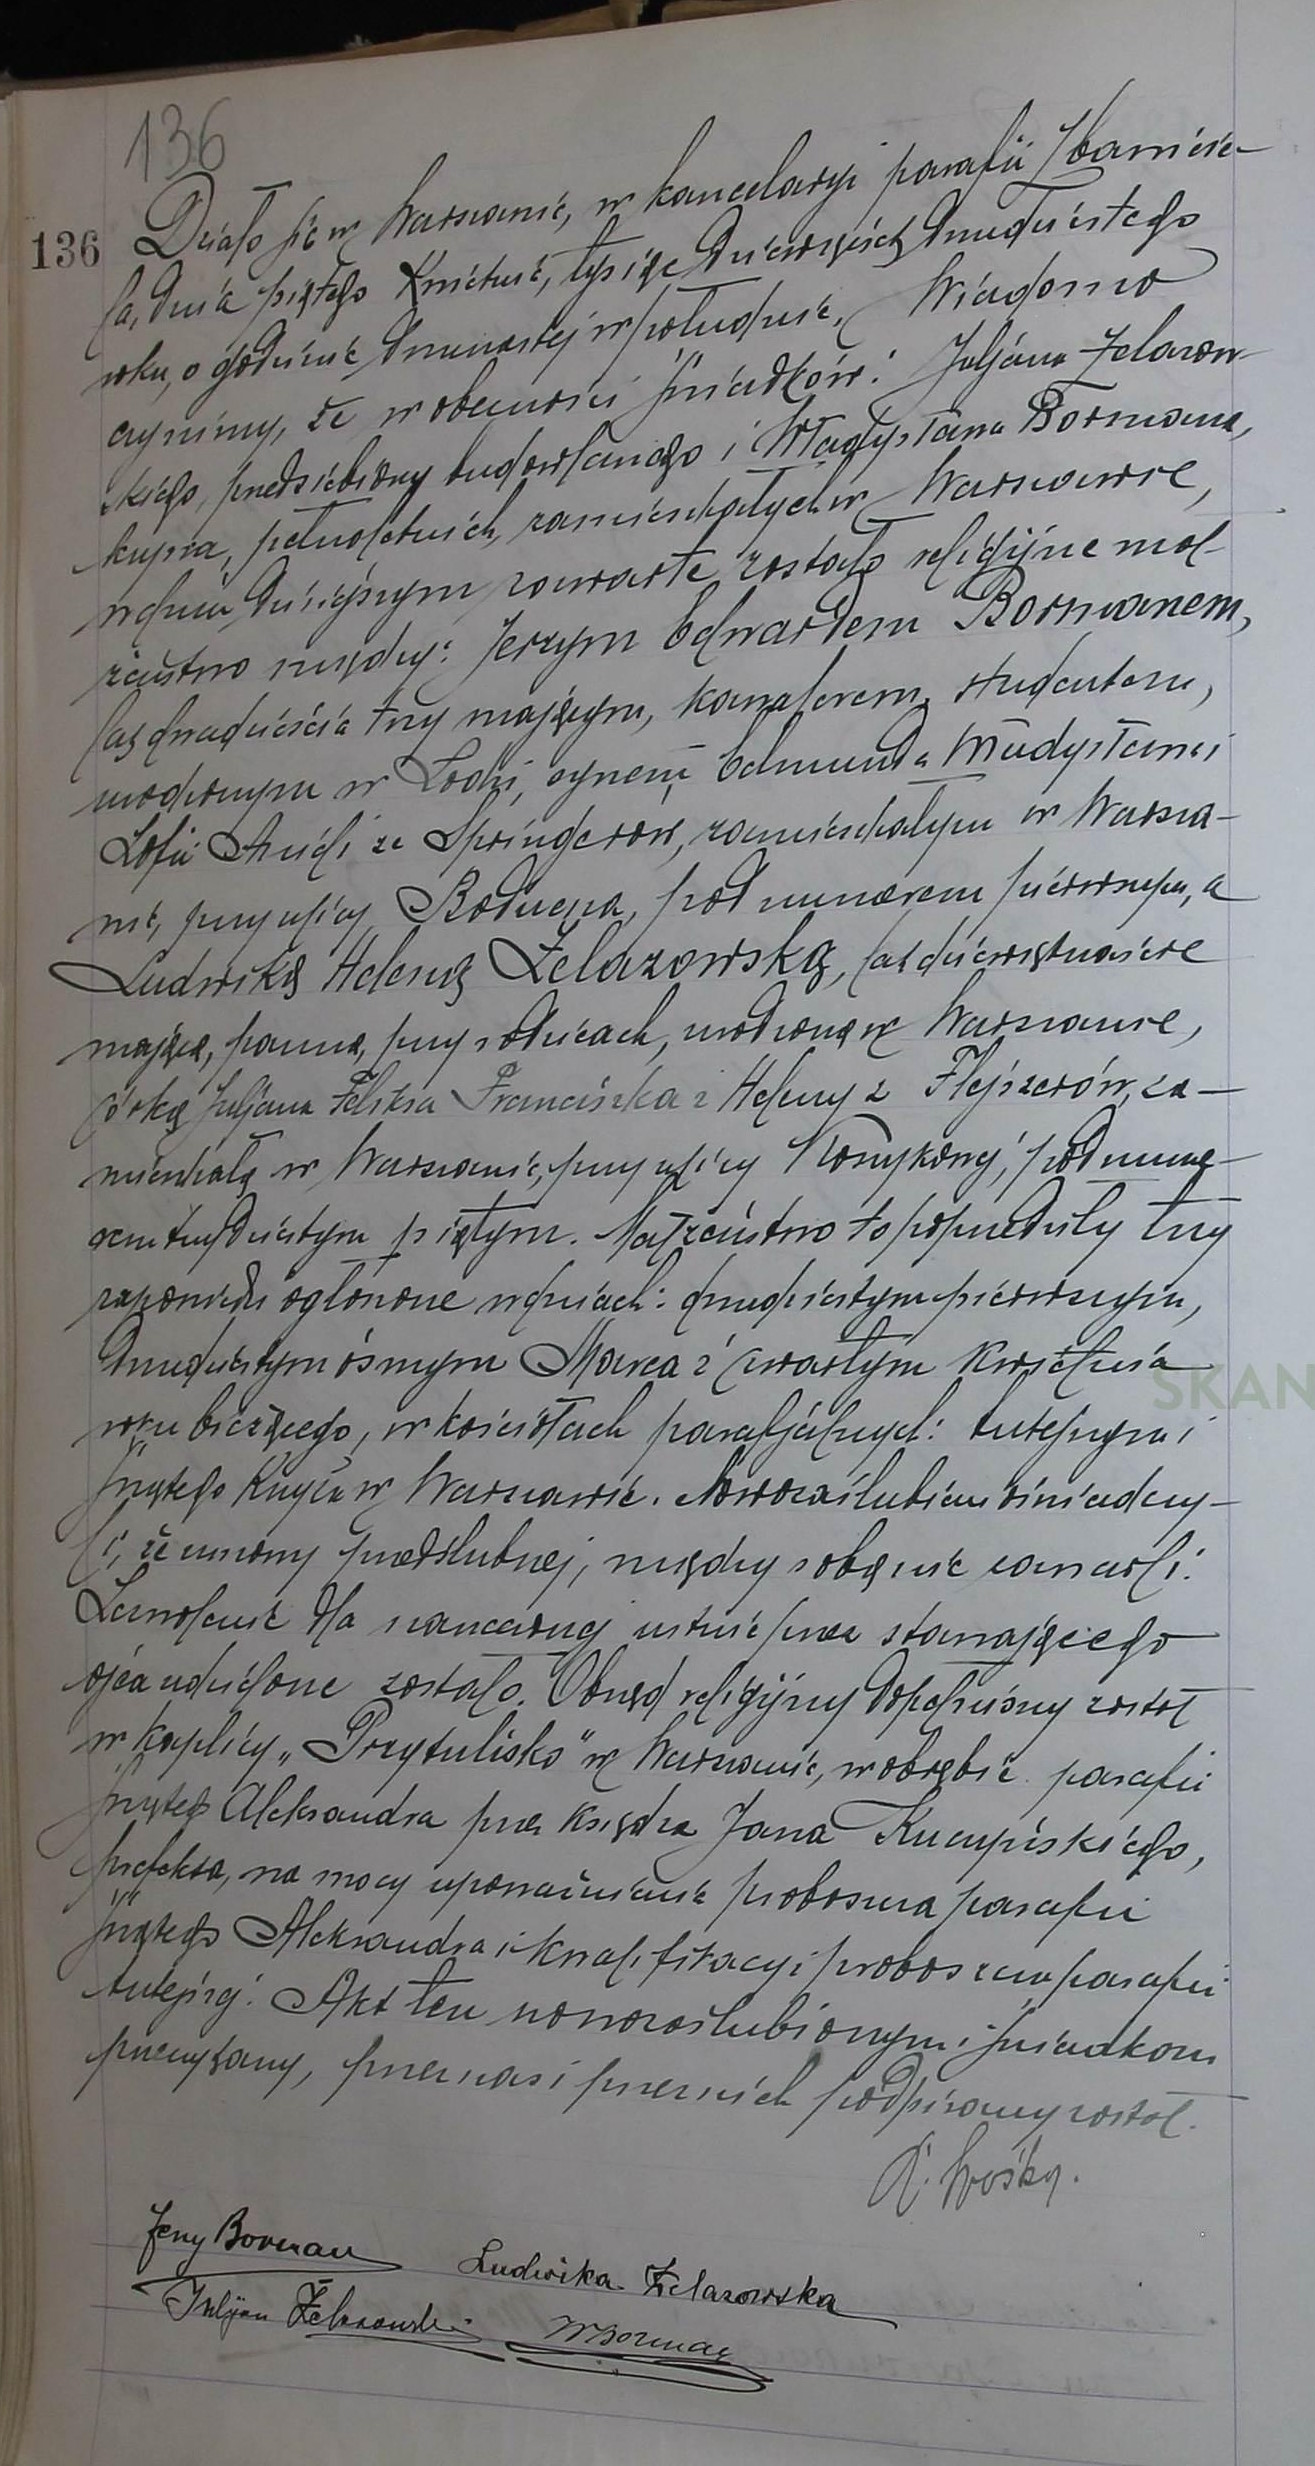 136
136 Działo się w Warszawie, w kancelaryi parafii Zbawicie-
la, dnia piątego Kwietnia, tysiąc dziewięćset dwudziestego
roku, o godzinie dwunastej w południe. Wiadomo
czynimy, że w obecności świadków: Juljana Żelazow-
skiego, przedsiębiorcy budowlanego i Władysława Bormana,
kupca, pełnoletnich, zamieszkałych w Warszawie,
w dniu dzisiejszym zawarte zostało religijne mał-
żeństwo między: Jerzym Edwardem Bormanem,
lat dwadzieścia trzy mającym, kawalerem, studentem,
urodzonym w Łodzi, synem Edmunda Władysława i
Zofii Anieli ze Springerów, zamieszkałym w Warsza-
wie, przy ulicy Boduena, pod numerem pierwszym, a
Ludwiką Heleną Żelazowską, lat dziewiętnaście
mającą, panną, przy rodzicach, urodzoną w Warszawie,
córką Juljana Feliksa Franciszka i Heleny z Flejszerów, za-
mieszkałą w Warszawie, przy ulicy Koszykowej, pod nume-
rem trzydziestym piątym. Małżeństwo to poprzedziły trzy
zapowiedzi ogłoszone w dniach: dwudziestym pierwszym,
dwudziestym ósmym Marca i czwartym Kwietnia
roku bieżącego, w kościołach parafjalnych: tutejszym i
Świętego Krzyża w Warszawie. Nowozaślubieni oświadczy-
li, że umowy przedślubnej, między sobą nie zawarli.
Zezwolenie dla narzeczonej ustnie przez stawającego
ojca udzielone zostało. Obrzęd religijny dopełniony został
w kaplicy „Przytulisko" w Warszawie, w obrębie parafii
Świętego Aleksandra przez Księdza Jana Kuczyńskiego,
prefekta, na mocy upoważnienia proboszcza parafii
Świętego Aleksandra i kwalifikacyi proboszcza parafii
tutejszej. Akt ten nowozaślubionym i świadkom
przeczytany, przez nas i przez nich podpisany został.
Jerzy Borman Ludwika Żelazowska
Juljan Żelazowski WBorman
SKAN